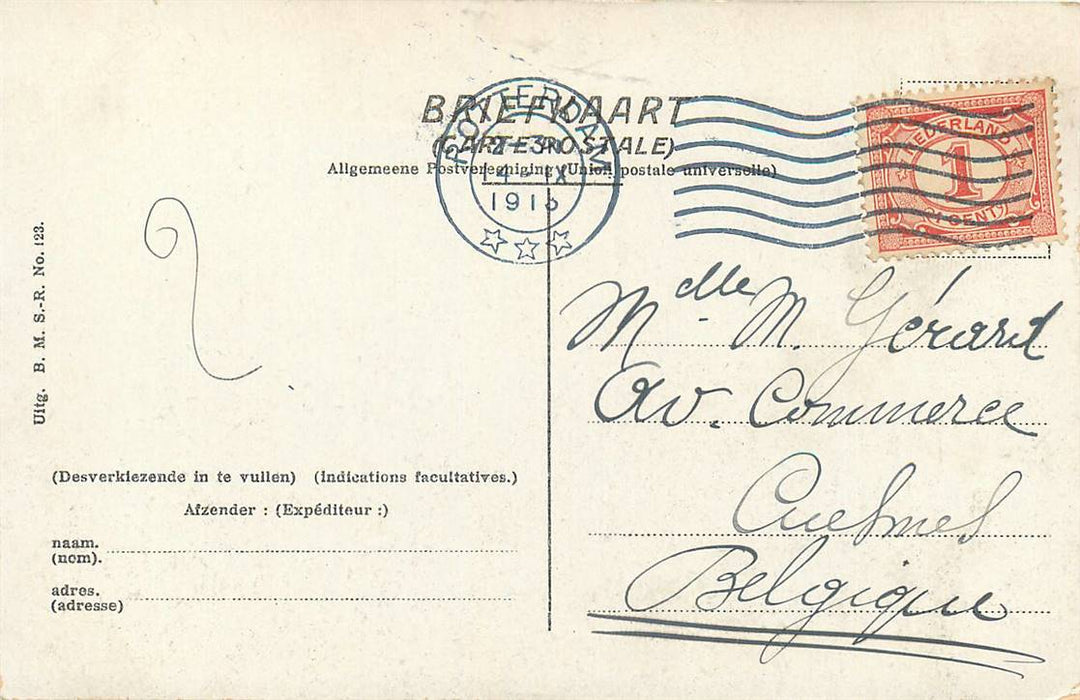 BRIEFKAART
(CARTE POSTALE)
Allgemeene Postvereeniging (Union postale universelle)
ROTTERDAM
2-3N
14 IX
1913
NEDERLAND
1
1 CENT
Mdlle M. Gérard
Av. Commerce
Cuesmes
Belgique
Uitg. B. M. S.-R. No. 123.
(Desverkiezende in te vullen) (Indications facultatives.)
Afzender : (Expéditeur :)
naam.
(nom).
adres.
(adresse)